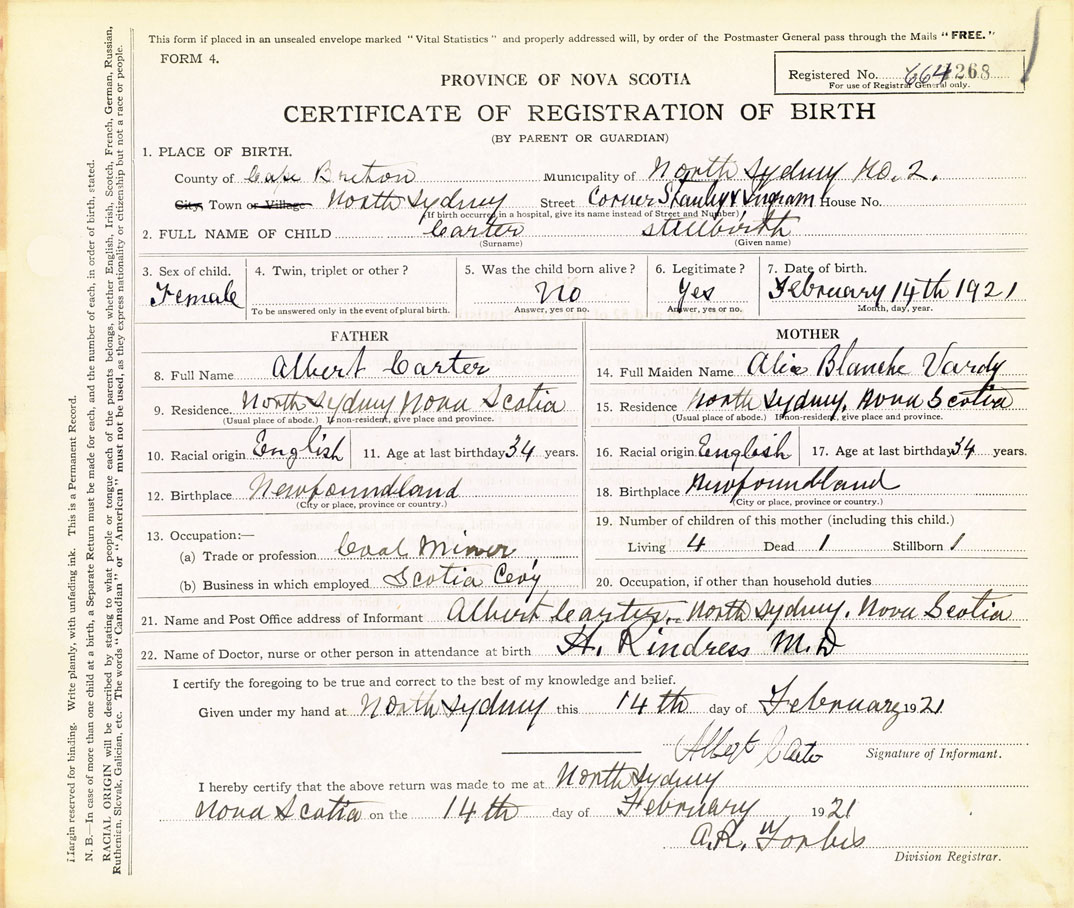 This form if placed in an unsealed envelope marked "Vital Statistics" and properly addressed will, by order of the Postmaster General pass through the Mails "FREE."
FORM 4.
Registered No. 664 1268
For use of Registrar General only.
PROVINCE OF NOVA SCOTIA
CERTIFICATE OF REGISTRATION OF BIRTH
(BY PARENT OR GUARDIAN)
1. PLACE OF BIRTH.
County of Cape Breton Municipality of North Sydney No. 2.
City, Town or Village North Sydney Street Corner Stanley & Ingram House No.
(If birth occurred in a hospital, give its name instead of Street and Number)
2. FULL NAME OF CHILD Carter stillbirth
(Surname) (Given name)
3. Sex of child. 4. Twin, triplet or other? 5. Was the child born alive? 6. Legitimate? 7. Date of birth.
Female No Yes February 14th 1921
To be answered only in the event of plural birth. Answer, yes or no. Answer, yes or no. Month, day, year.
FATHER
8. Full Name Albert Carter
9. Residence North Sydney Nova Scotia
(Usual place of abode.) If non-resident, give place and province.
10. Racial origin English 11. Age at last birthday 34 years.
12. Birthplace Newfoundland
(City or place, province or country.)
13. Occupation:—
(a) Trade or profession Coal Miner
(b) Business in which employed Scotia Co'y
MOTHER
14. Full Maiden Name Alice Blanche Vardy
15. Residence North Sydney, Nova Scotia
(Usual place of abode.) If non-resident, give place and province.
16. Racial origin English 17. Age at last birthday 34 years.
18. Birthplace Newfoundland
(City or place, province or country.)
19. Number of children of this mother (including this child.)
Living 4 Dead 1 Stillborn 1
20. Occupation, if other than household duties
21. Name and Post Office address of Informant Albert Carter, North Sydney, Nova Scotia
22. Name of Doctor, nurse or other person in attendance at birth H. Rindress M.D
I certify the foregoing to be true and correct to the best of my knowledge and belief.
Given under my hand at North Sydney this 14th day of February 1921
Albert Carter
Signature of Informant.
I hereby certify that the above return was made to me at North Sydney
Nova Scotia on the 14th day of February 1921
A.R. Forbis
Division Registrar.
Margin reserved for binding. Write plainly, with unfading ink. This is a Permanent Record.
N. B.—In case of more than one child at a birth, a Separate Return must be made for each, and the number of each, in order of birth, stated.
RACIAL ORIGIN will be described by stating to what people or tongue each of the parents belongs, whether English, Irish, Scotch, French, German, Russian,
Ruthenian, Slovak, Galician, etc. The words "Canadian" or "American" must not be used, as they express nationality or citizenship but not a race or people.